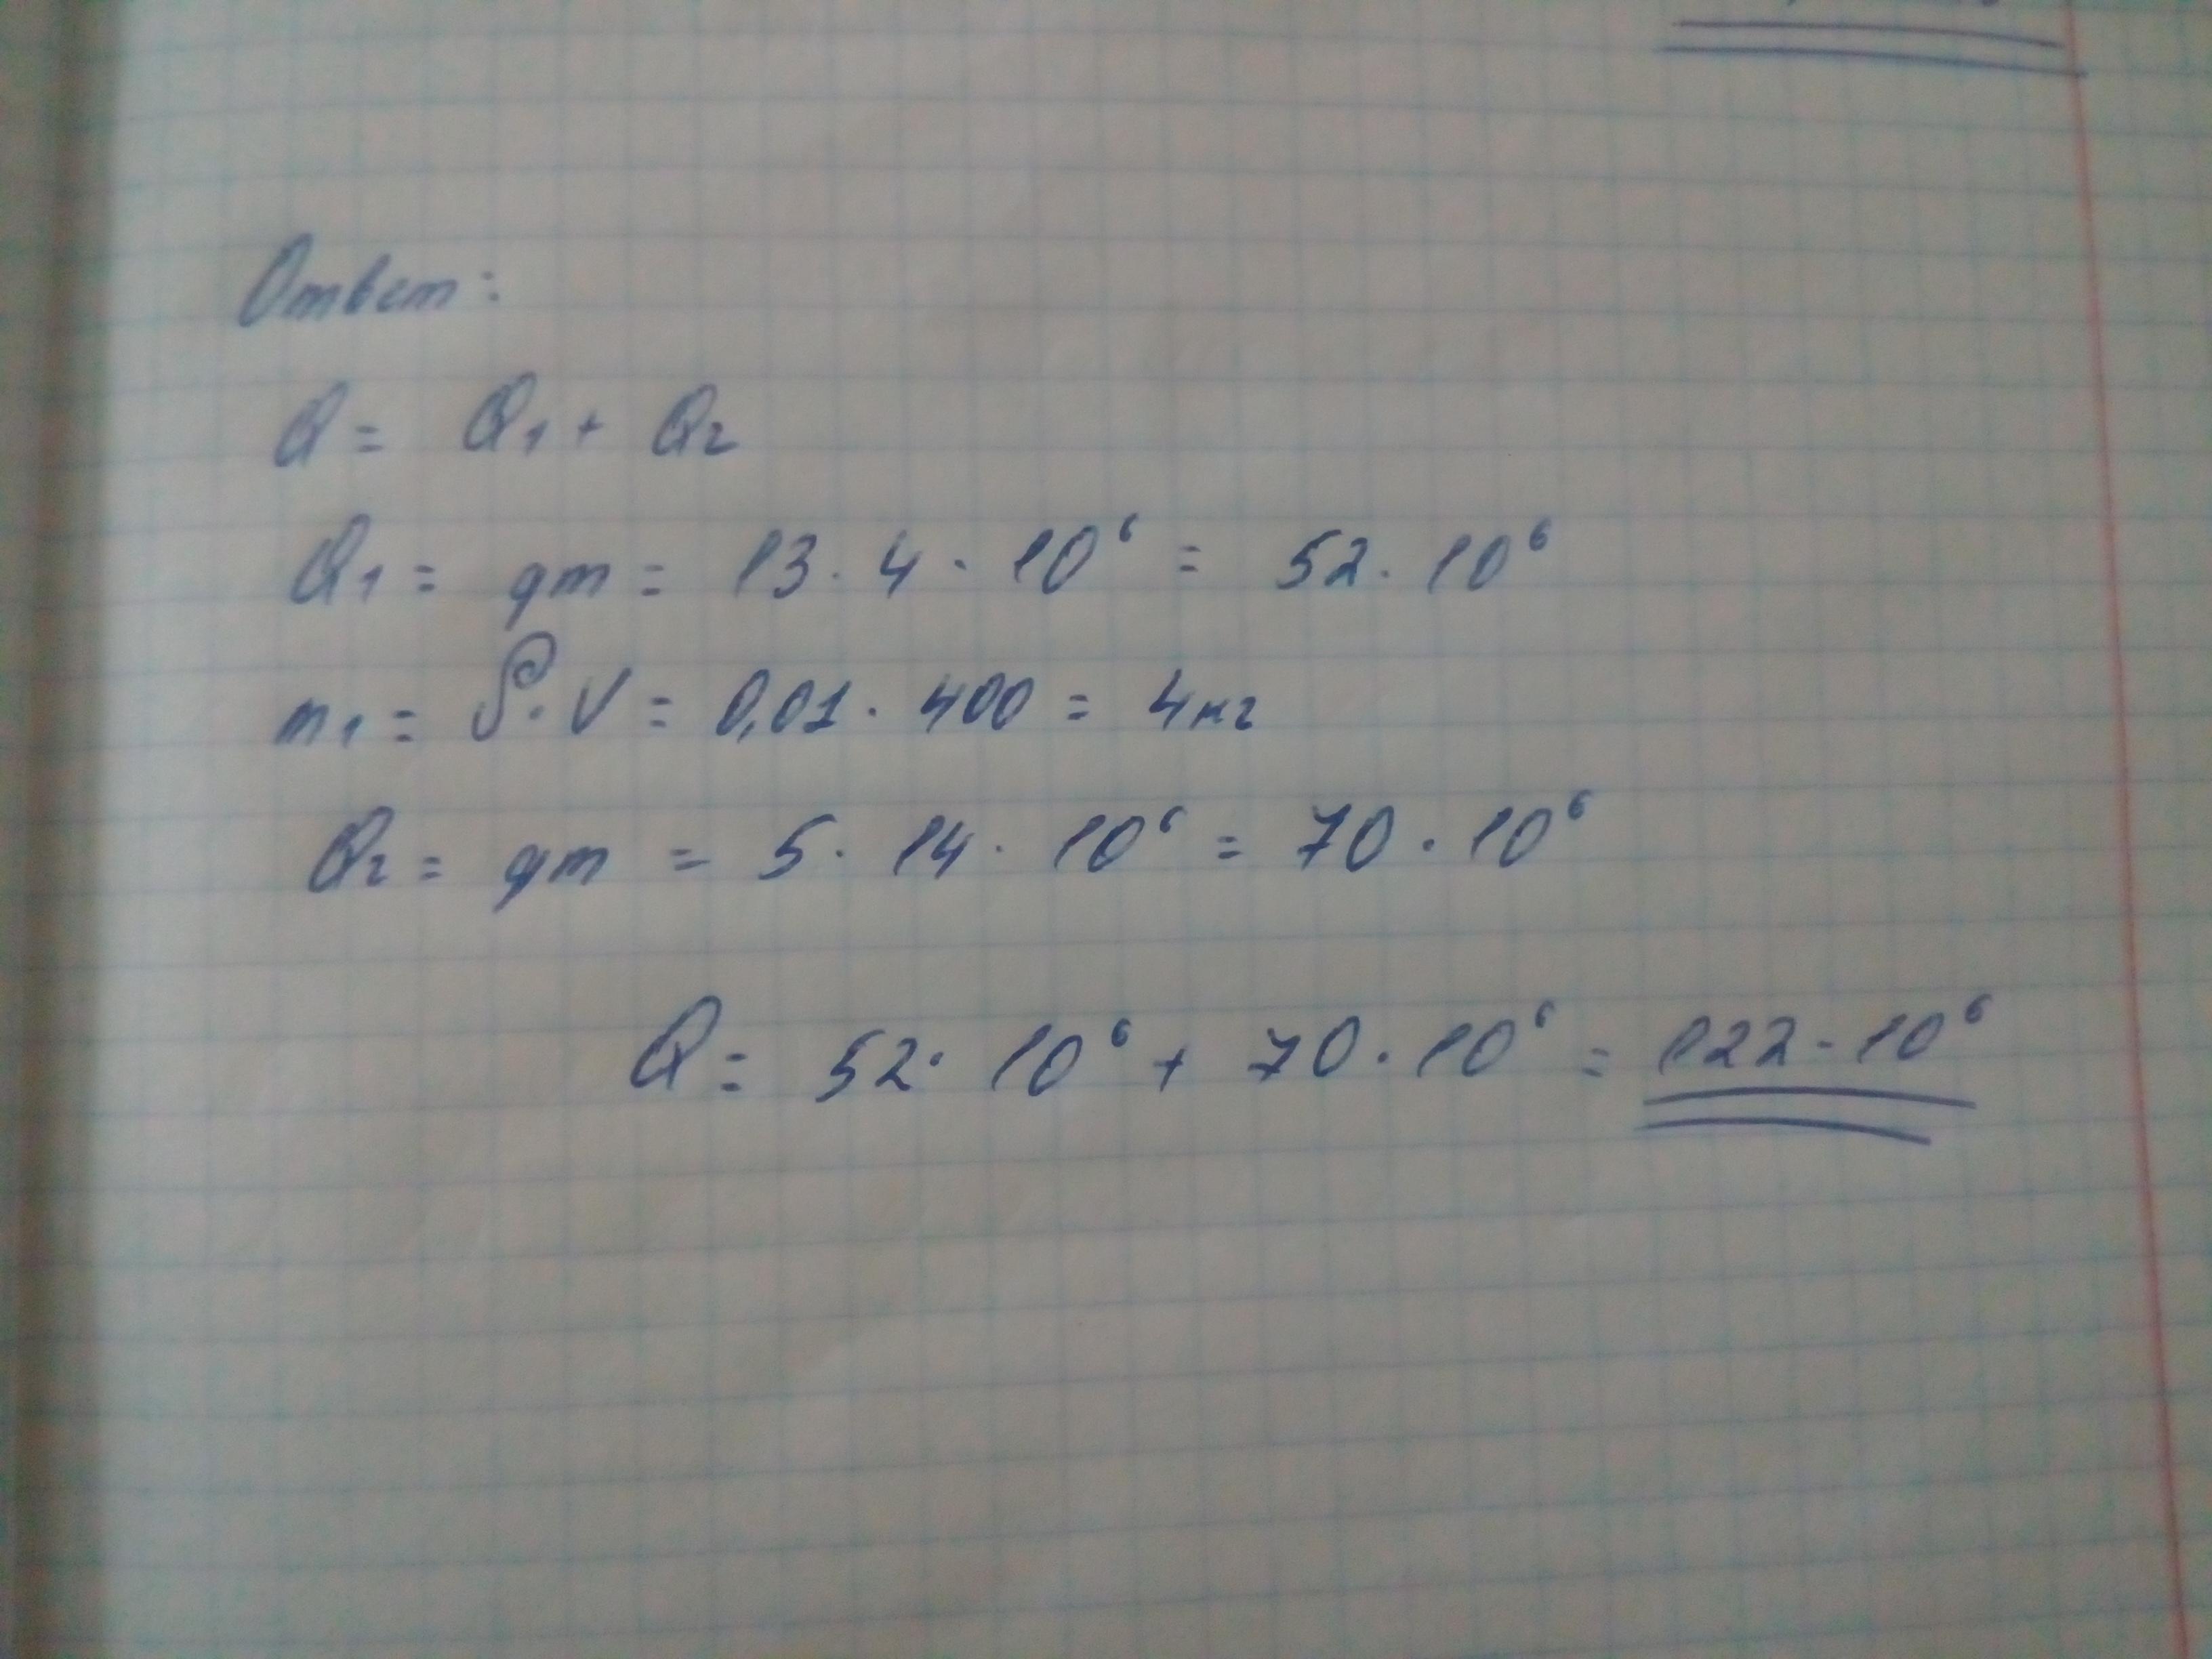 Ответ:
Q = Q₁ + Q₂
Q₁ = qm = 13 · 4 · 10⁶ = 52 · 10⁶
m₁ = ρ · V = 0,01 · 400 = 4 кг
Q₂ = qm = 5 · 14 · 10⁶ = 70 · 10⁶
Q = 52 · 10⁶ + 70 · 10⁶ = 122 · 10⁶